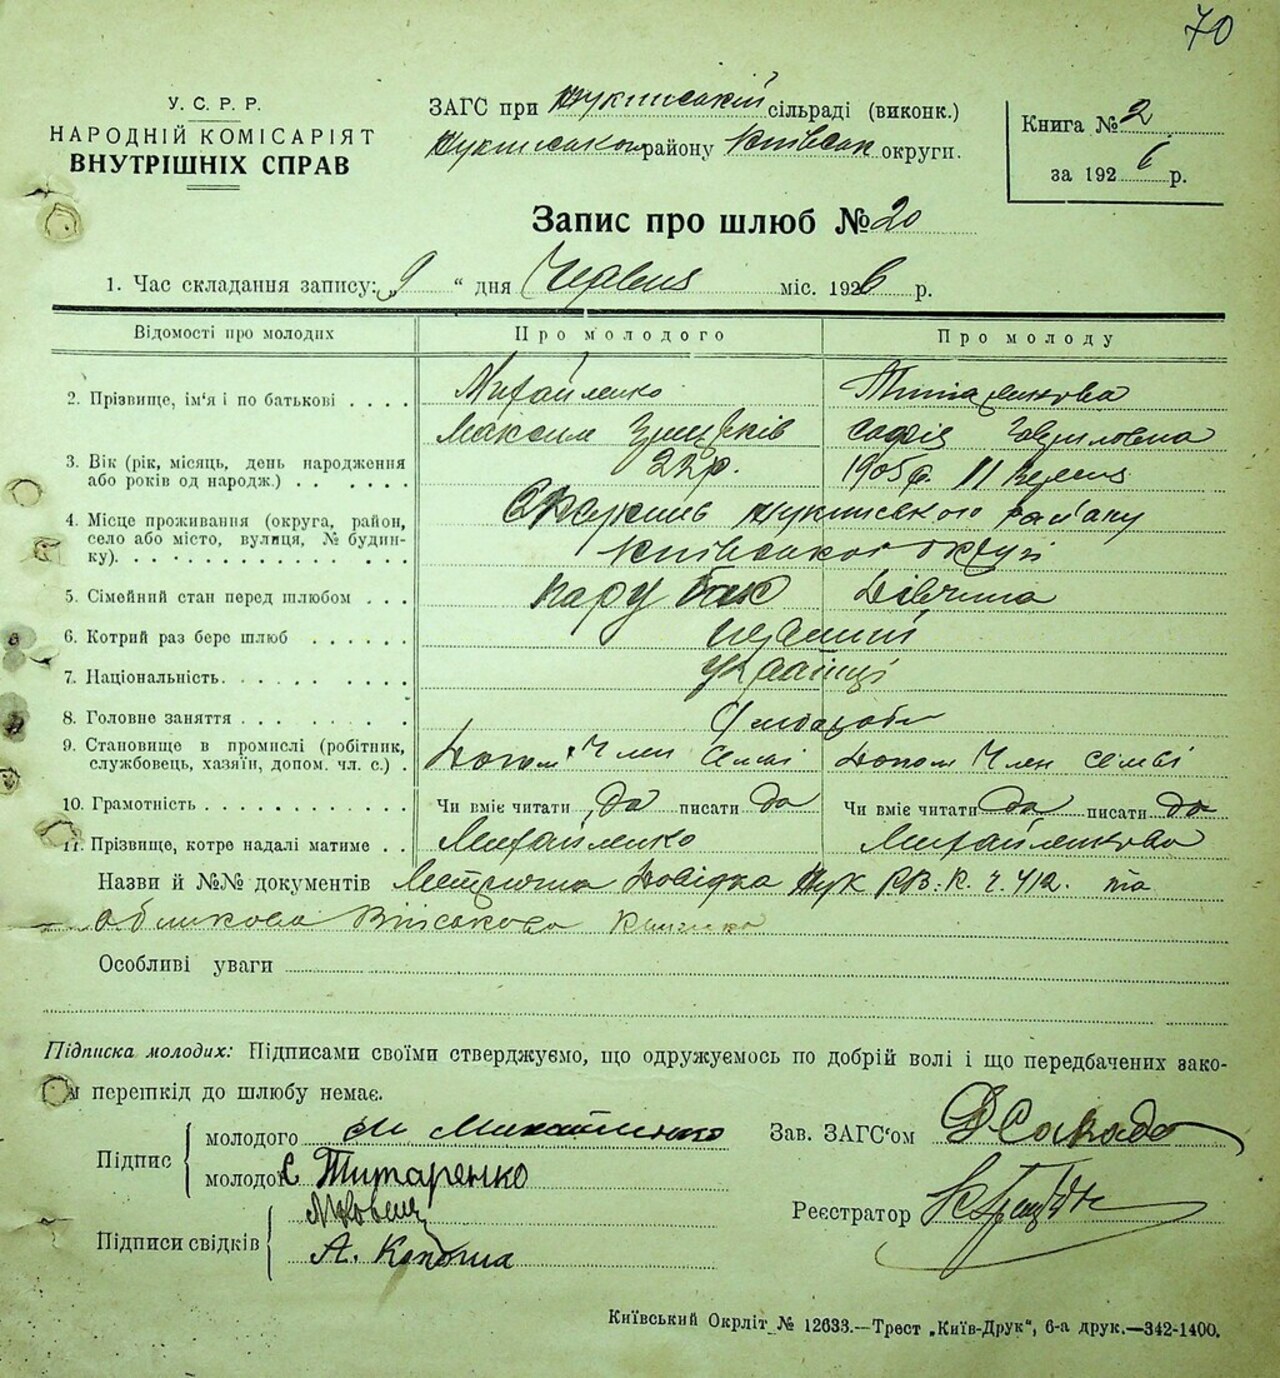 70
У. С. Р. Р.
НАРОДНІЙ КОМІСАРІЯТ
ВНУТРІШНІХ СПРАВ
ЗАГС при сільраді (виконк.)
району Київськ округи.
Книга № 2
за 1926 р.
Запис про шлюб № 20
1. Час складання запису: „9 “ дня Червня міс. 1926 р.
Відомості про молодих Про молодого Про молоду
2. Прізвище, ім'я і по батькові Михайленко Титаренкова
Максим Софія Гавриловна
3. Вік (рік, місяць, день народження або років од народж.) 22 р. 1905 р. 11 Вересня
4. Місце проживання (округа, район, село або місто, вулиця, № будинку). району
Київської округи
5. Сімейний стан перед шлюбом парубок дівчина
6. Котрий раз бере шлюб перший
7. Національність українці
8. Головне заняття
9. Становище в промислі (робітник, службовець, хазяїн, допом. чл. с.) Допом Член семьі Допом Член семьі
10. Грамотність Чи вміє читати да писати да Чи вміє читати да писати да
11. Прізвище, котре надалі матиме Михайленко Михайленкова
Назви й №№ документів Довідка Р.В.К. ч. 412. та
обликова Військова книжка
Особливі уваги
Підписка молодих: Підписами своїми стверджуємо, що одружуємось по добрій волі і що передбачених зако-
м перешкід до шлюбу немає.
Підпис
молодого М Михайленко
молодої С Титаренко
Зав. ЗАГС'ом
Реєстратор
Підписи свідків
А.
Київський Окрліт № 12633.—Трест „Київ-Друк“, 6-а друк.—342-1400.